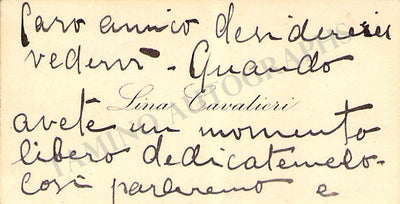 Caro amico desidererei
vedervi - Quando
Lina Cavalieri
avete un momento
libero dedicatemelo-
così parleremo e
TAMINO AUTOGRAPHS